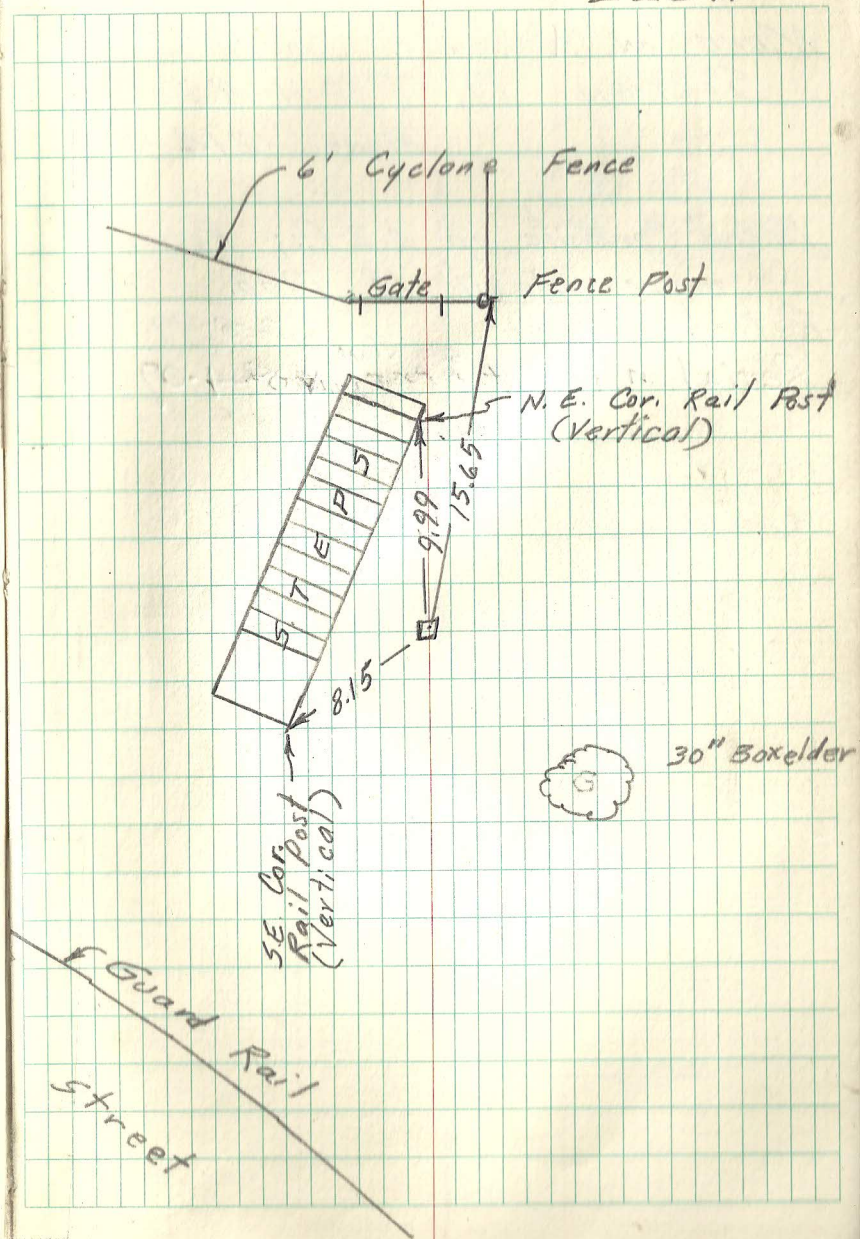 6' Cyclone Fence
Gate
Fence Post
N. E. Cor. Rail Post
(Vertical)
STEPS
9.99
15.65
8.15
30" Boxelder
S.E. Cor.
Rail Post
(Vertical)
Guard Rail
Street